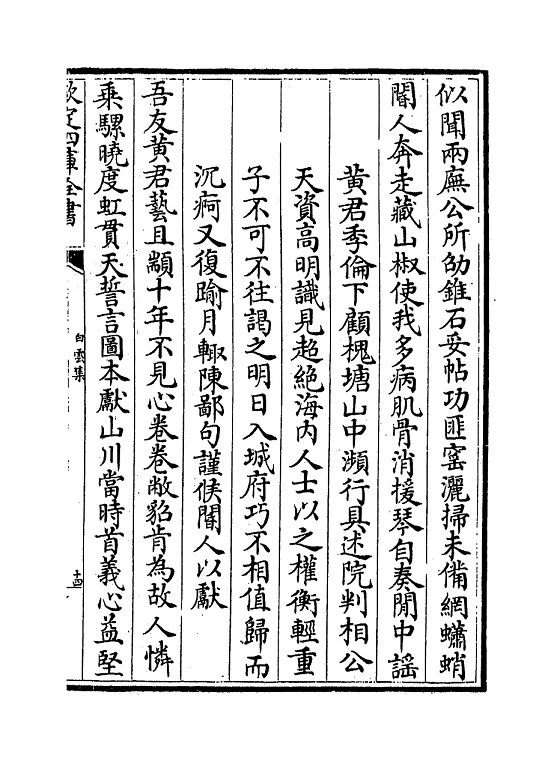 似聞兩廡公所劬錐石妥帖功匪窰灑掃未備網蠨蛸
閽人奔走藏山椒使我多病肌骨消援琴自奏閒中謡
黄君季倫下顧槐塘山中瀕行具述院判相公
天資高明識見超絶海内人士以之權衡輕重
子不可不往謁之明日入城府巧不相值歸而
沉疴又復踰月輙陳鄙句謹候閽人以獻
吾友黄君藝且顓十年不見心卷卷敝貂肯為故人憐
乘騾曉度虹貫天誓言圖本獻山川當時首義心益堅
欽定四庫全書
白雲集
十四